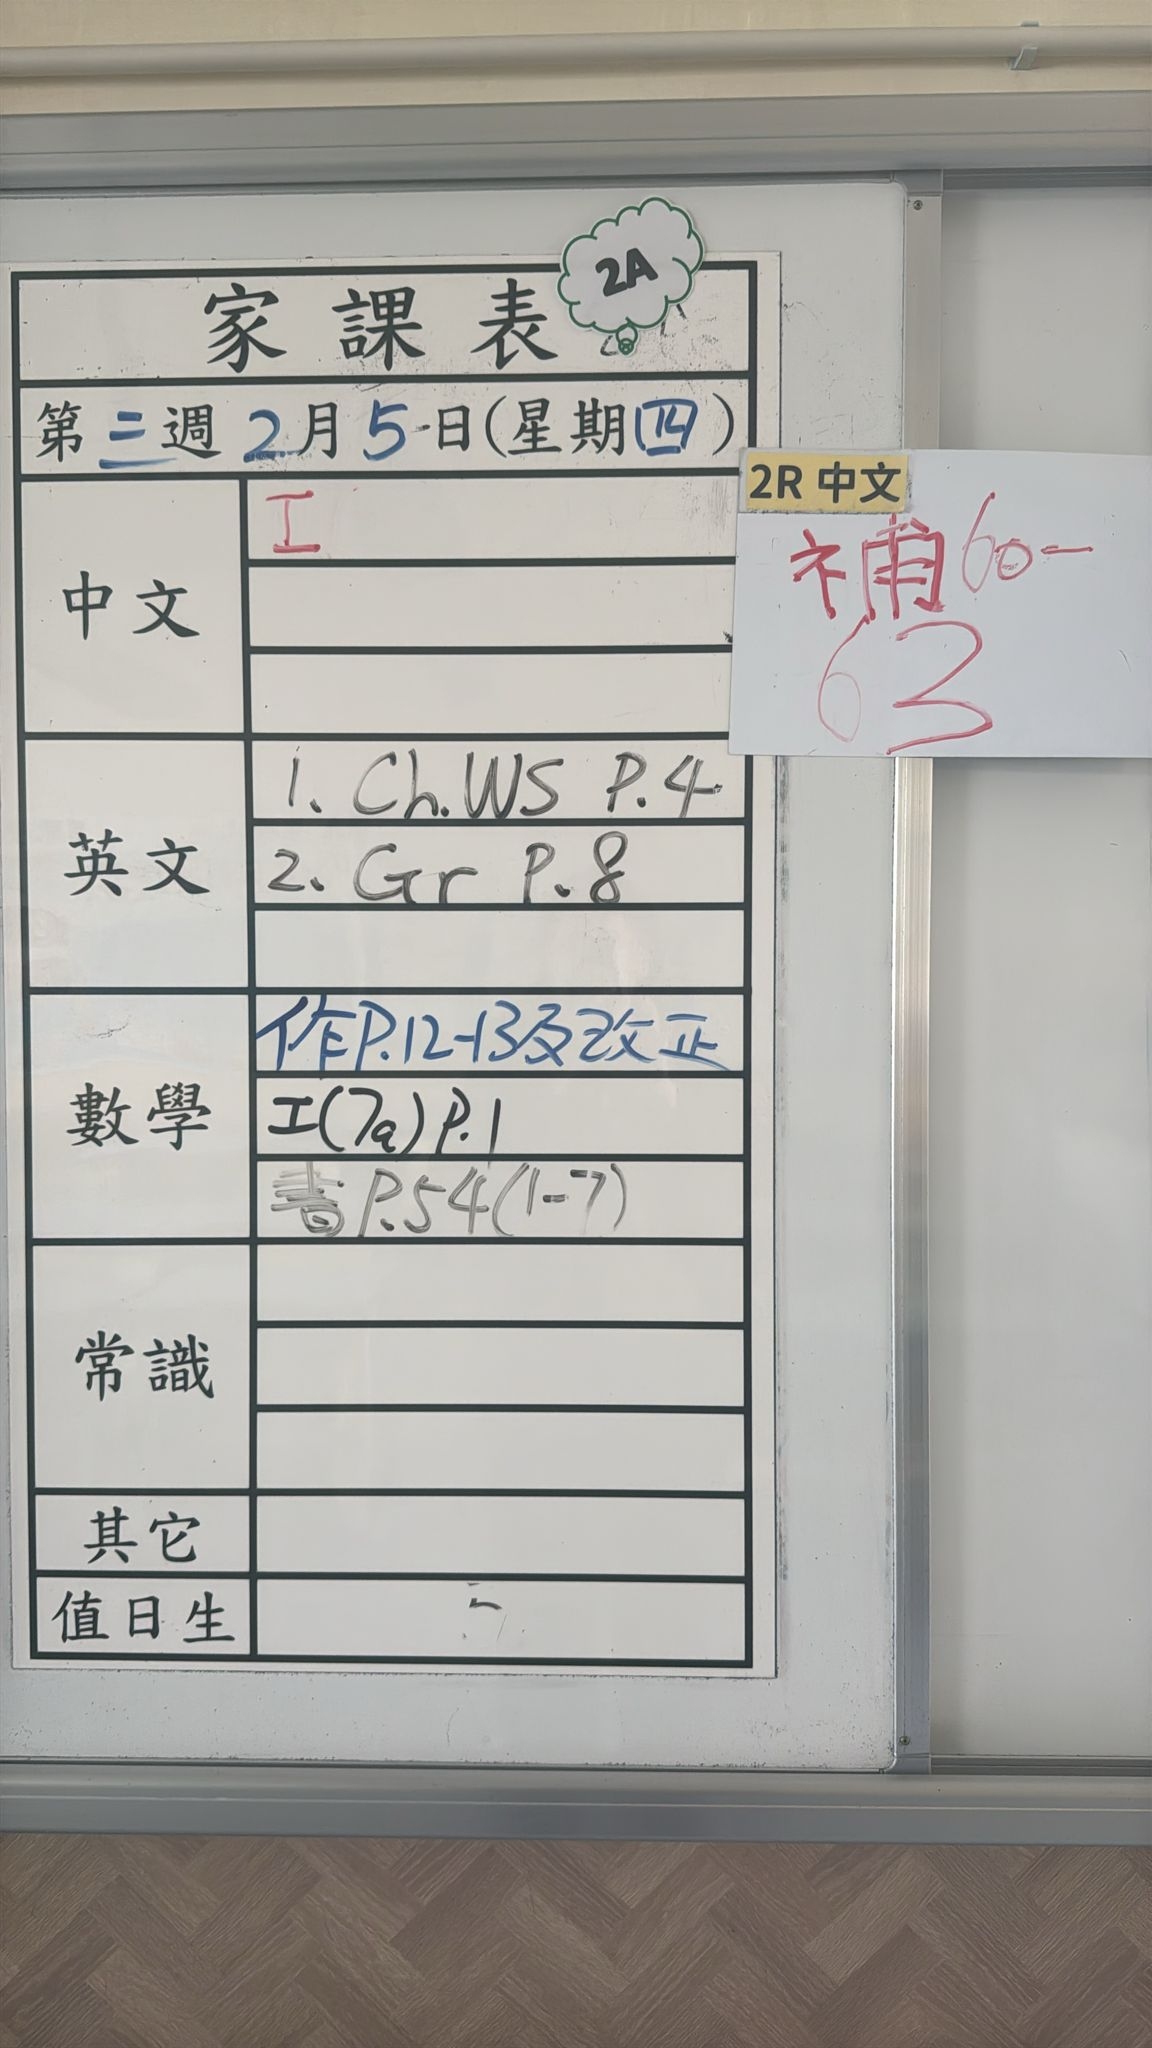 2A
家課表
第二週2月5日(星期四)
2R 中文
補60-
63
中文
工
英文
1. Ch.WS P.4
2. Gr P.8
數學
作P.12-13及改正
工(7a) P.1
書P.54(1-7)
常識
其它
值日生